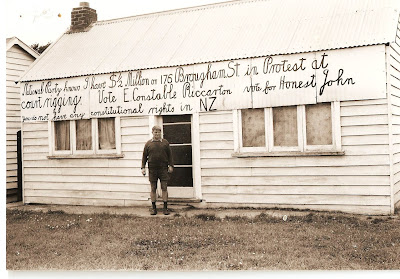 National Party know I have $½ Million on 175 Brougham St in Protest at
court rigging: Vote E Constable Riccarton vote for Honest John
you do not have any constitutional rights in NZ